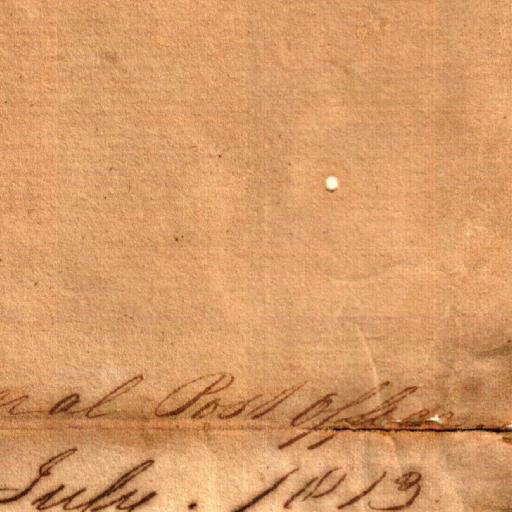 ral Post office
July. 1813